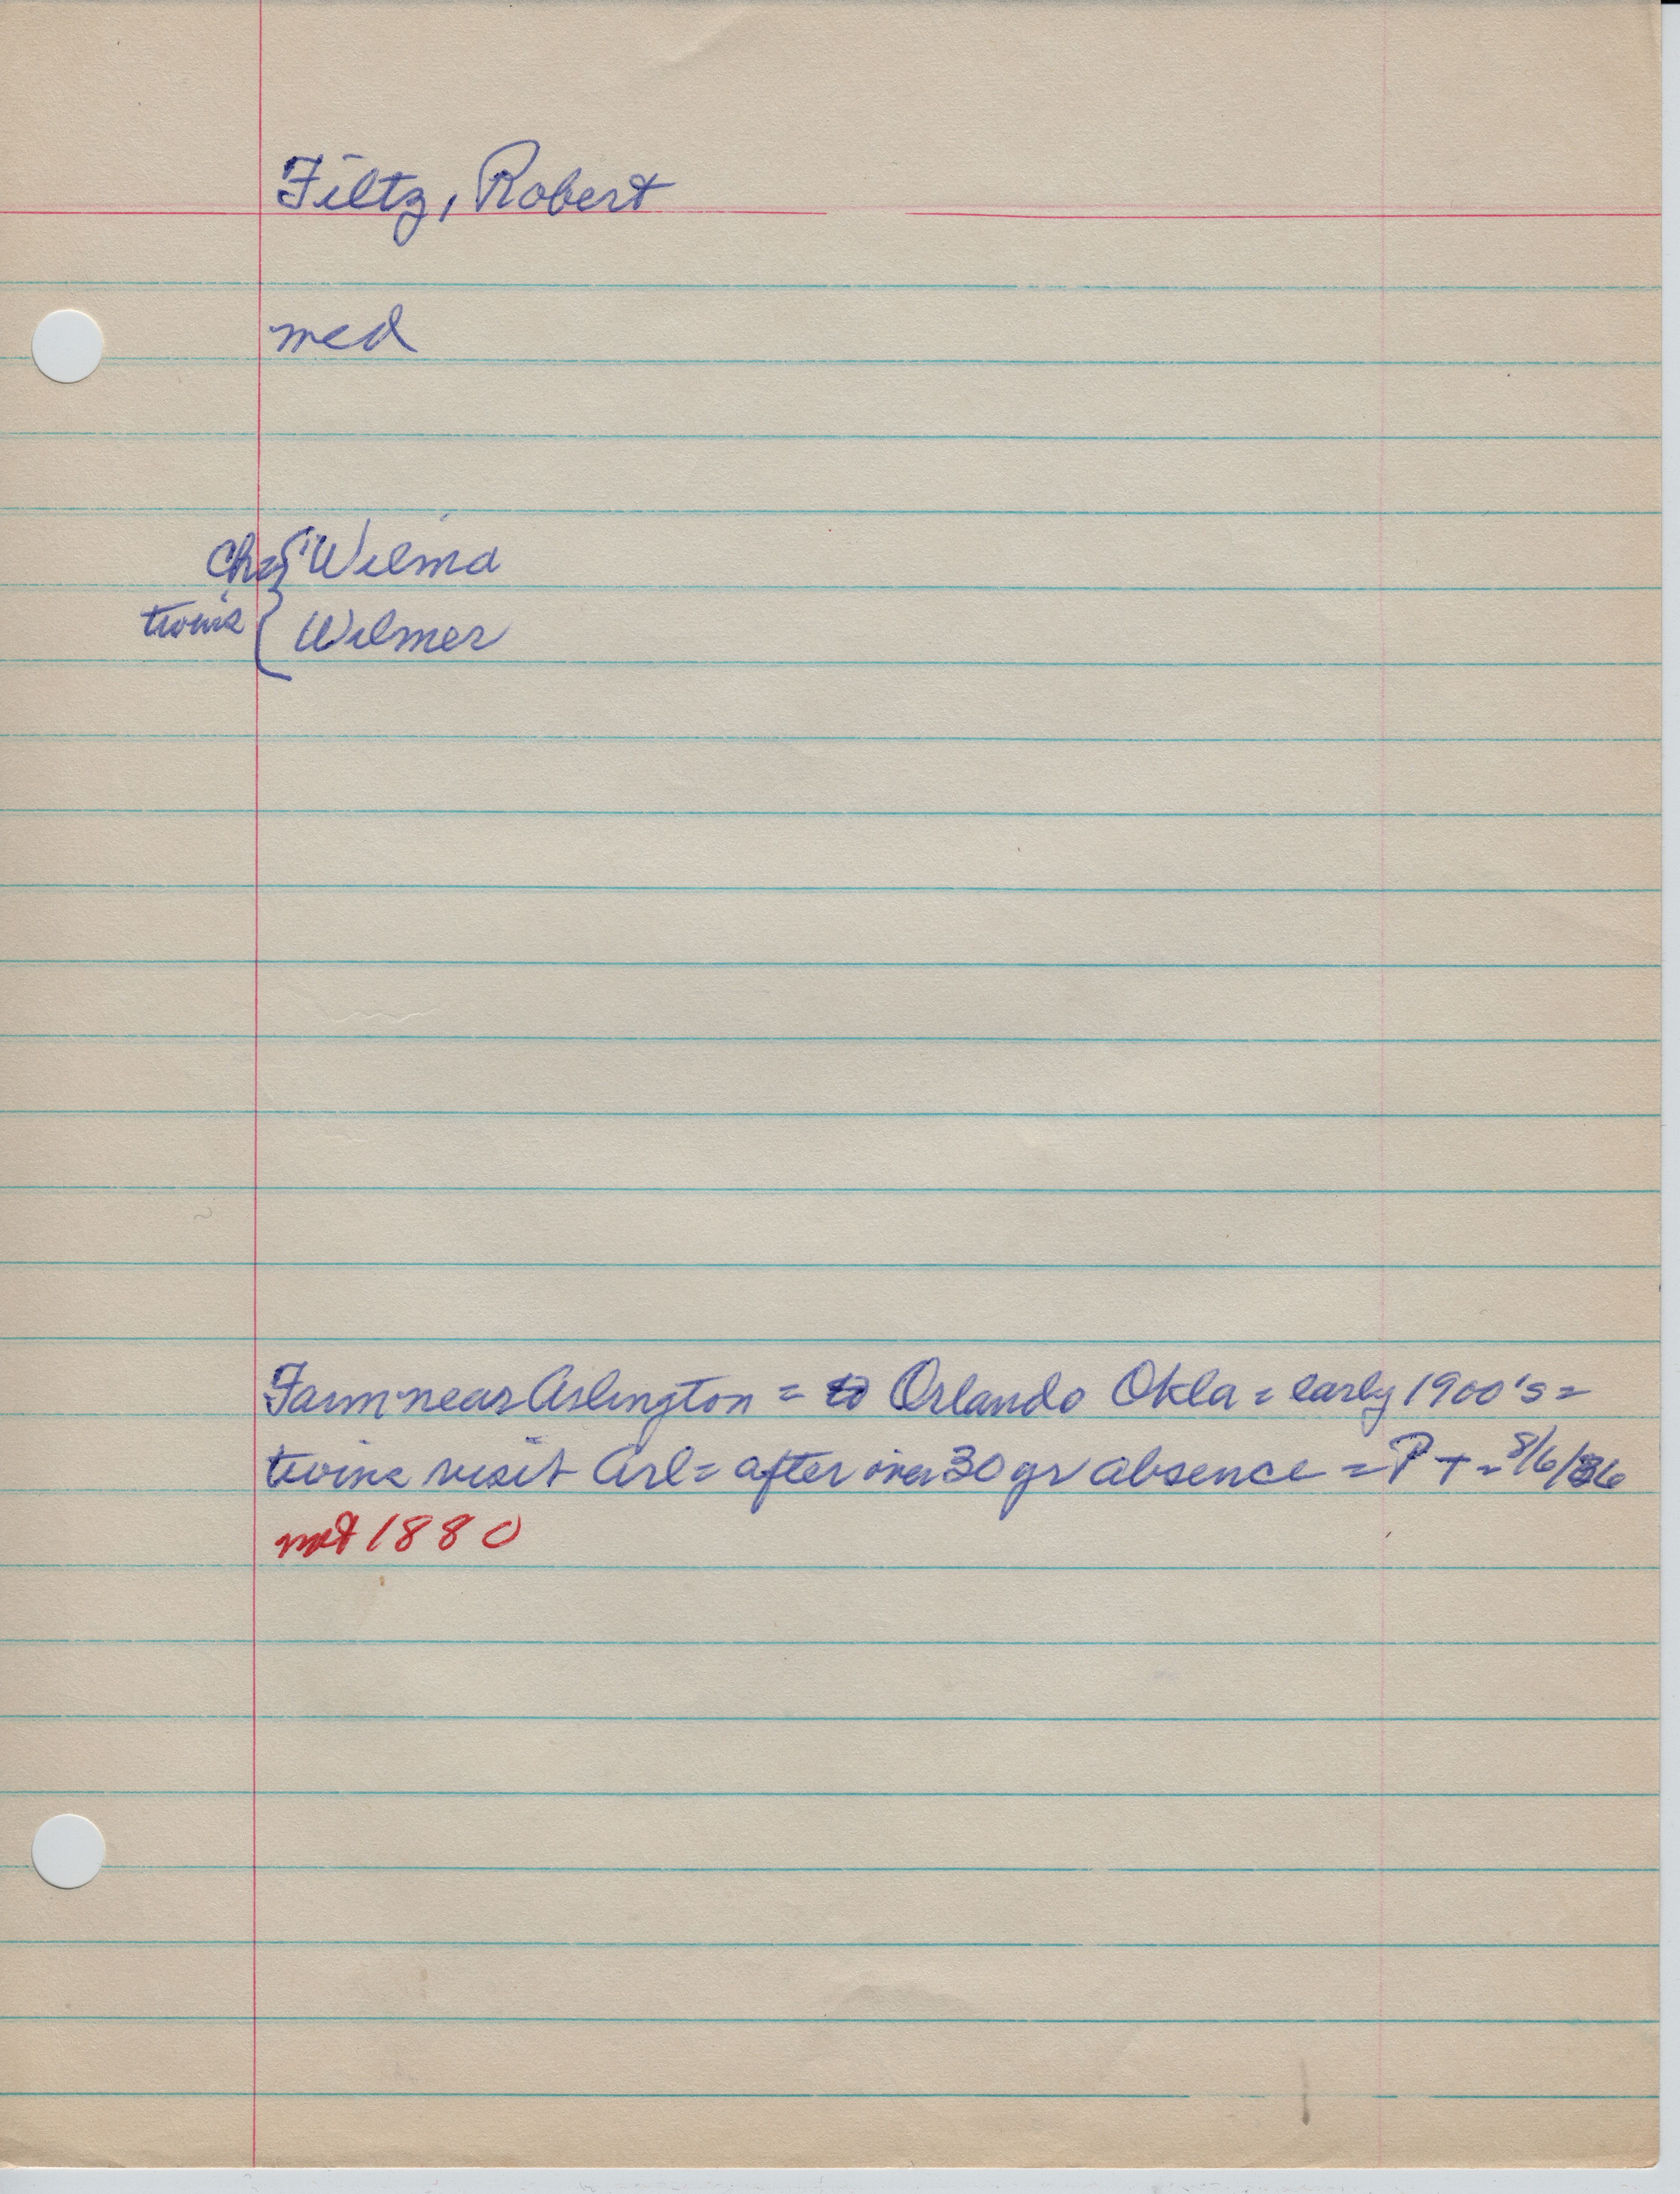 Filtz, Robert
med
Ch={ Wilma
twins { Wilmer
Farm near Arlington = to Orlando Okla = early 1900's =
twins visit Arl = after over 30 yr absence = P T = 8/6/36
not 1880